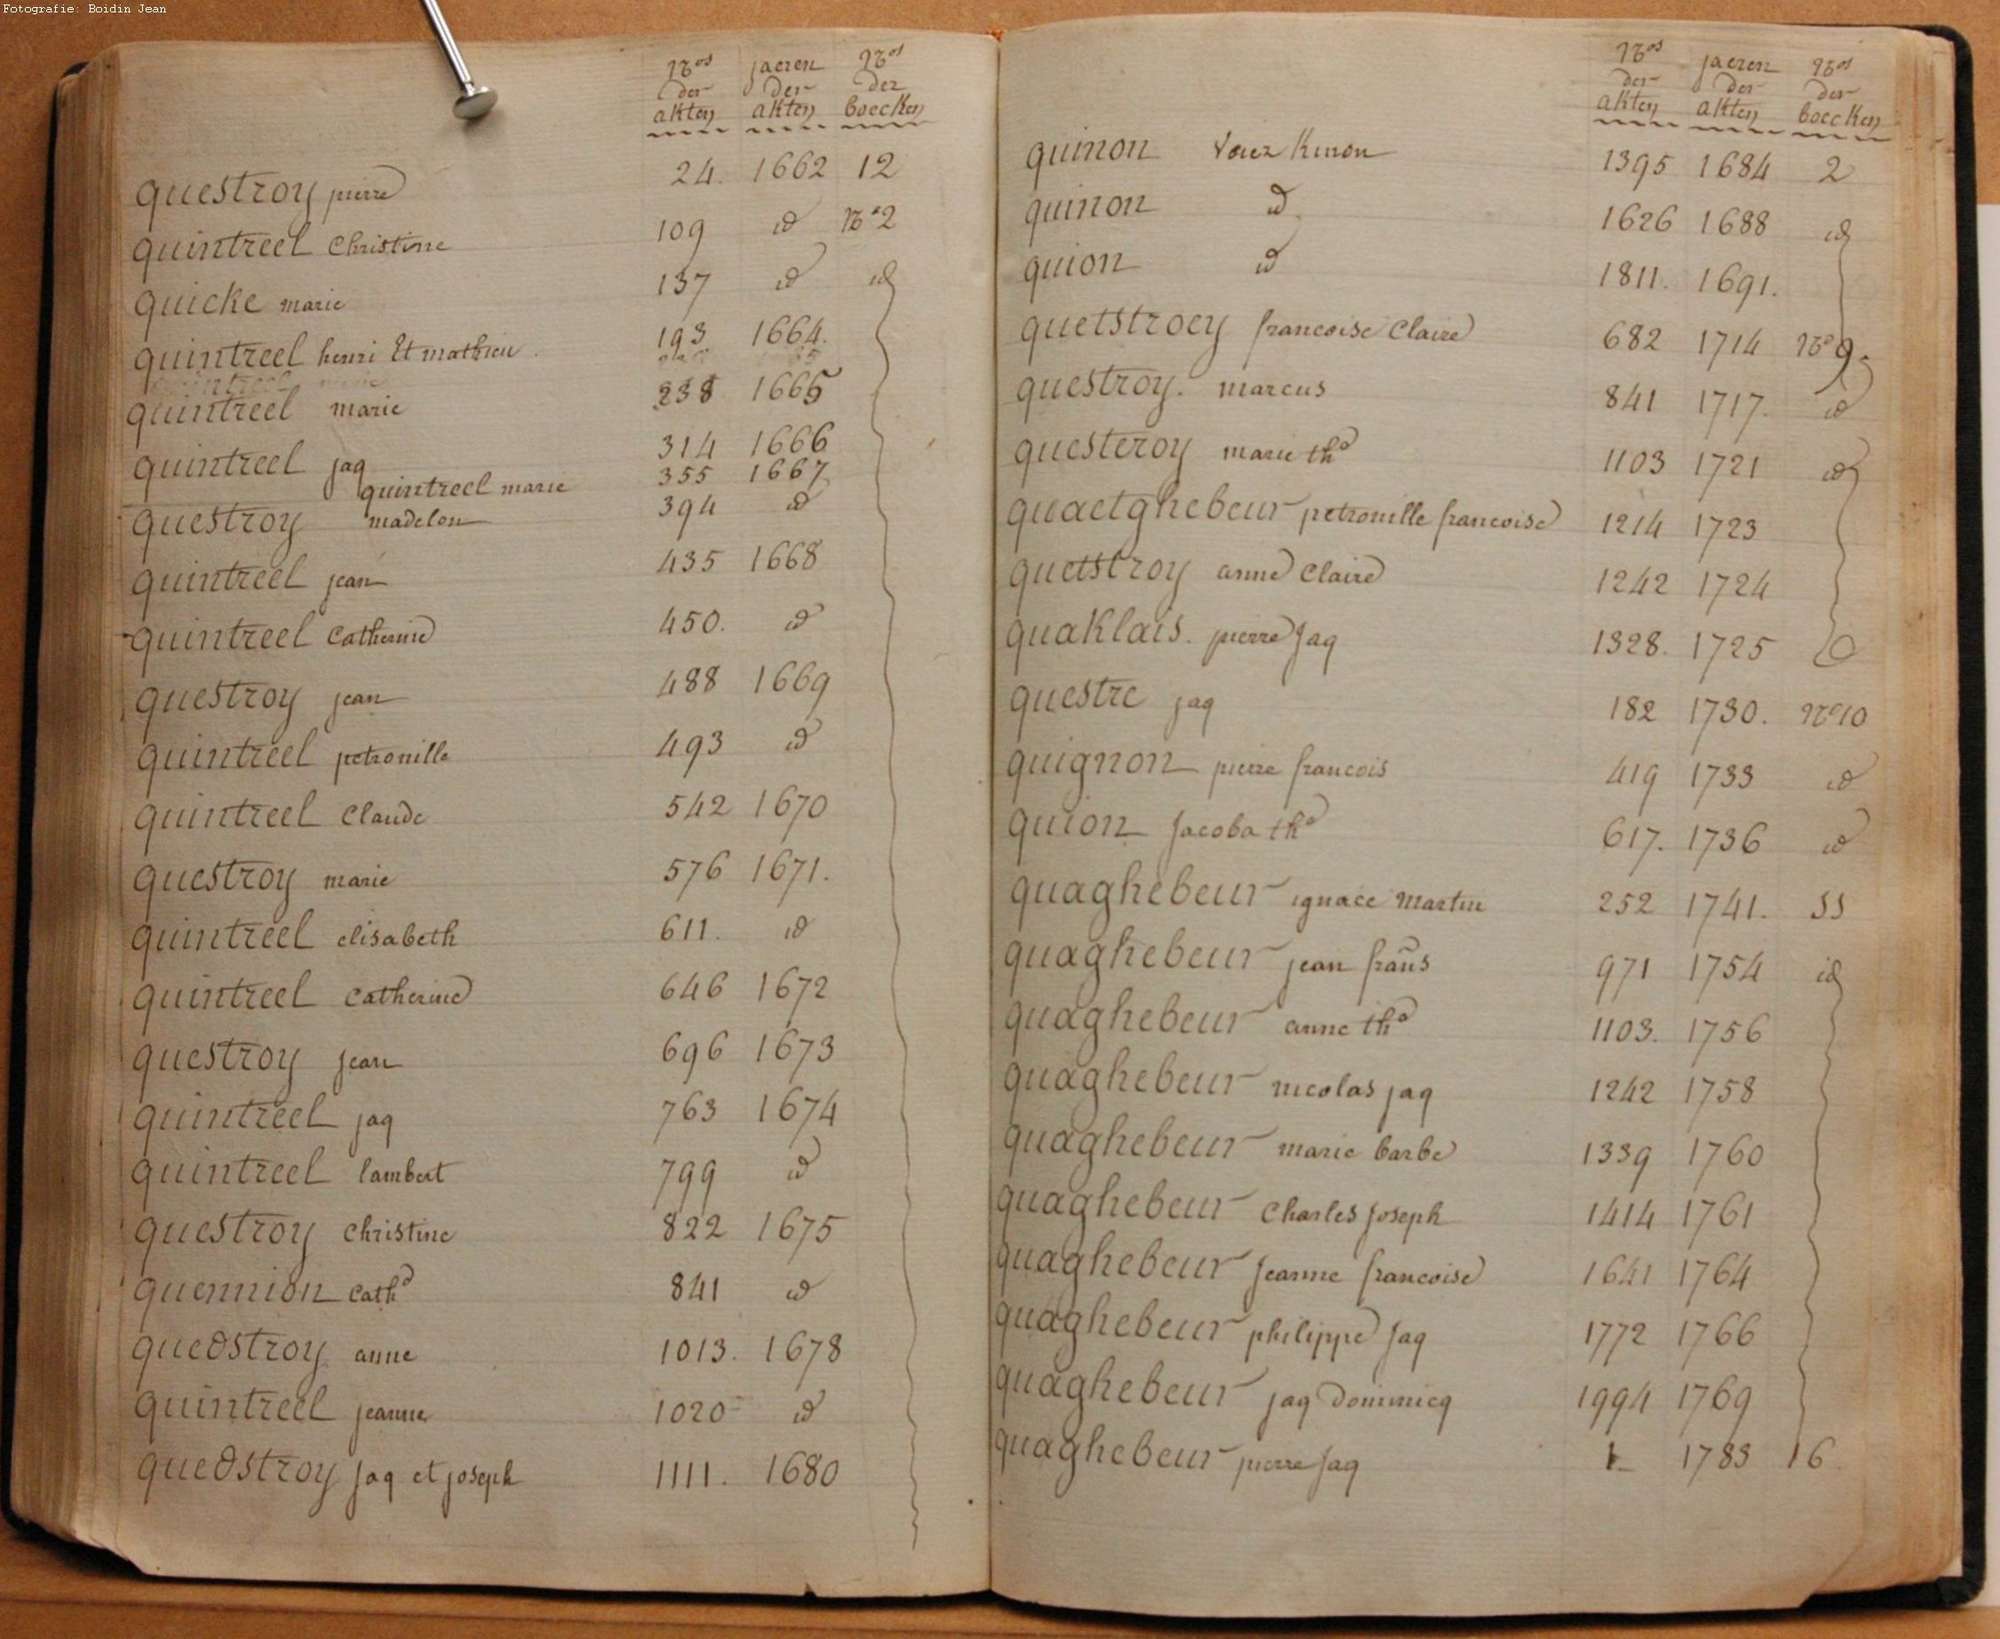 Fotografie: Boidin Jean
Nos jaeren Nos
der der der
akten akten boecken
questroy pierre 24. 1662 12
quintreel Christine 109 id No 2
quicke marie 137 id id
quintreel henri Et mathieu. 193 1664.
quintreel marie 238 1665
quintreel jaq 314 1666
quintreel marie 355 1667
questroy madelon 394 id
quintreel jean 435 1668
quintreel Catherine 450. id
questroy jean 488 1669
quintreel petronille 493 id
quintreel Claude 542 1670
questroy marie 576 1671.
quintreel elisabeth 611. id
quintreel Catherine 646 1672
questroy jean 696 1673
quintreel jaq 763 1674
quintreel lambert 799 id
questroy Christine 822 1675
quennion Cathe 841 id
quedstroy anne 1013. 1678
quintreel jeanne 1020 id
quedstroy jaq et joseph 1111. 1680
Nos jaeren Nos
der der der
akten akten boecken
quinon Voiez Kinon 1395 1684 2
quinon id 1626 1688 id
quion id 1811. 1691.
quetstroey francoise Claire 682 1714 No 9.
questroy. marcus 841 1717. id
questeroy marie the 1103 1721 id
quaetghebeur petronille francoise 1214 1723
quetstroy anne Claire 1242 1724
quaklais. pierre Jaq 1328. 1725
questre jaq 182 1730. No 10
quignon pierre francois 419 1733 id
quion Jacoba the 617. 1736 id
quaghebeur ignace Martin 252 1741. 11
quaghebeur jean frans 971 1754 id
quaghebeur anne the 1103. 1756
quaghebeur nicolas jaq 1242 1758
quaghebeur marie barbe 1339 1760
quaghebeur Charles Joseph 1414 1761
quaghebeur Jeanne francoise 1641 1764
quaghebeur philippe Jaq 1772 1766
quaghebeur jaq Dominicq 1994 1769
quaghebeur pierre Jaq 1 1783 16